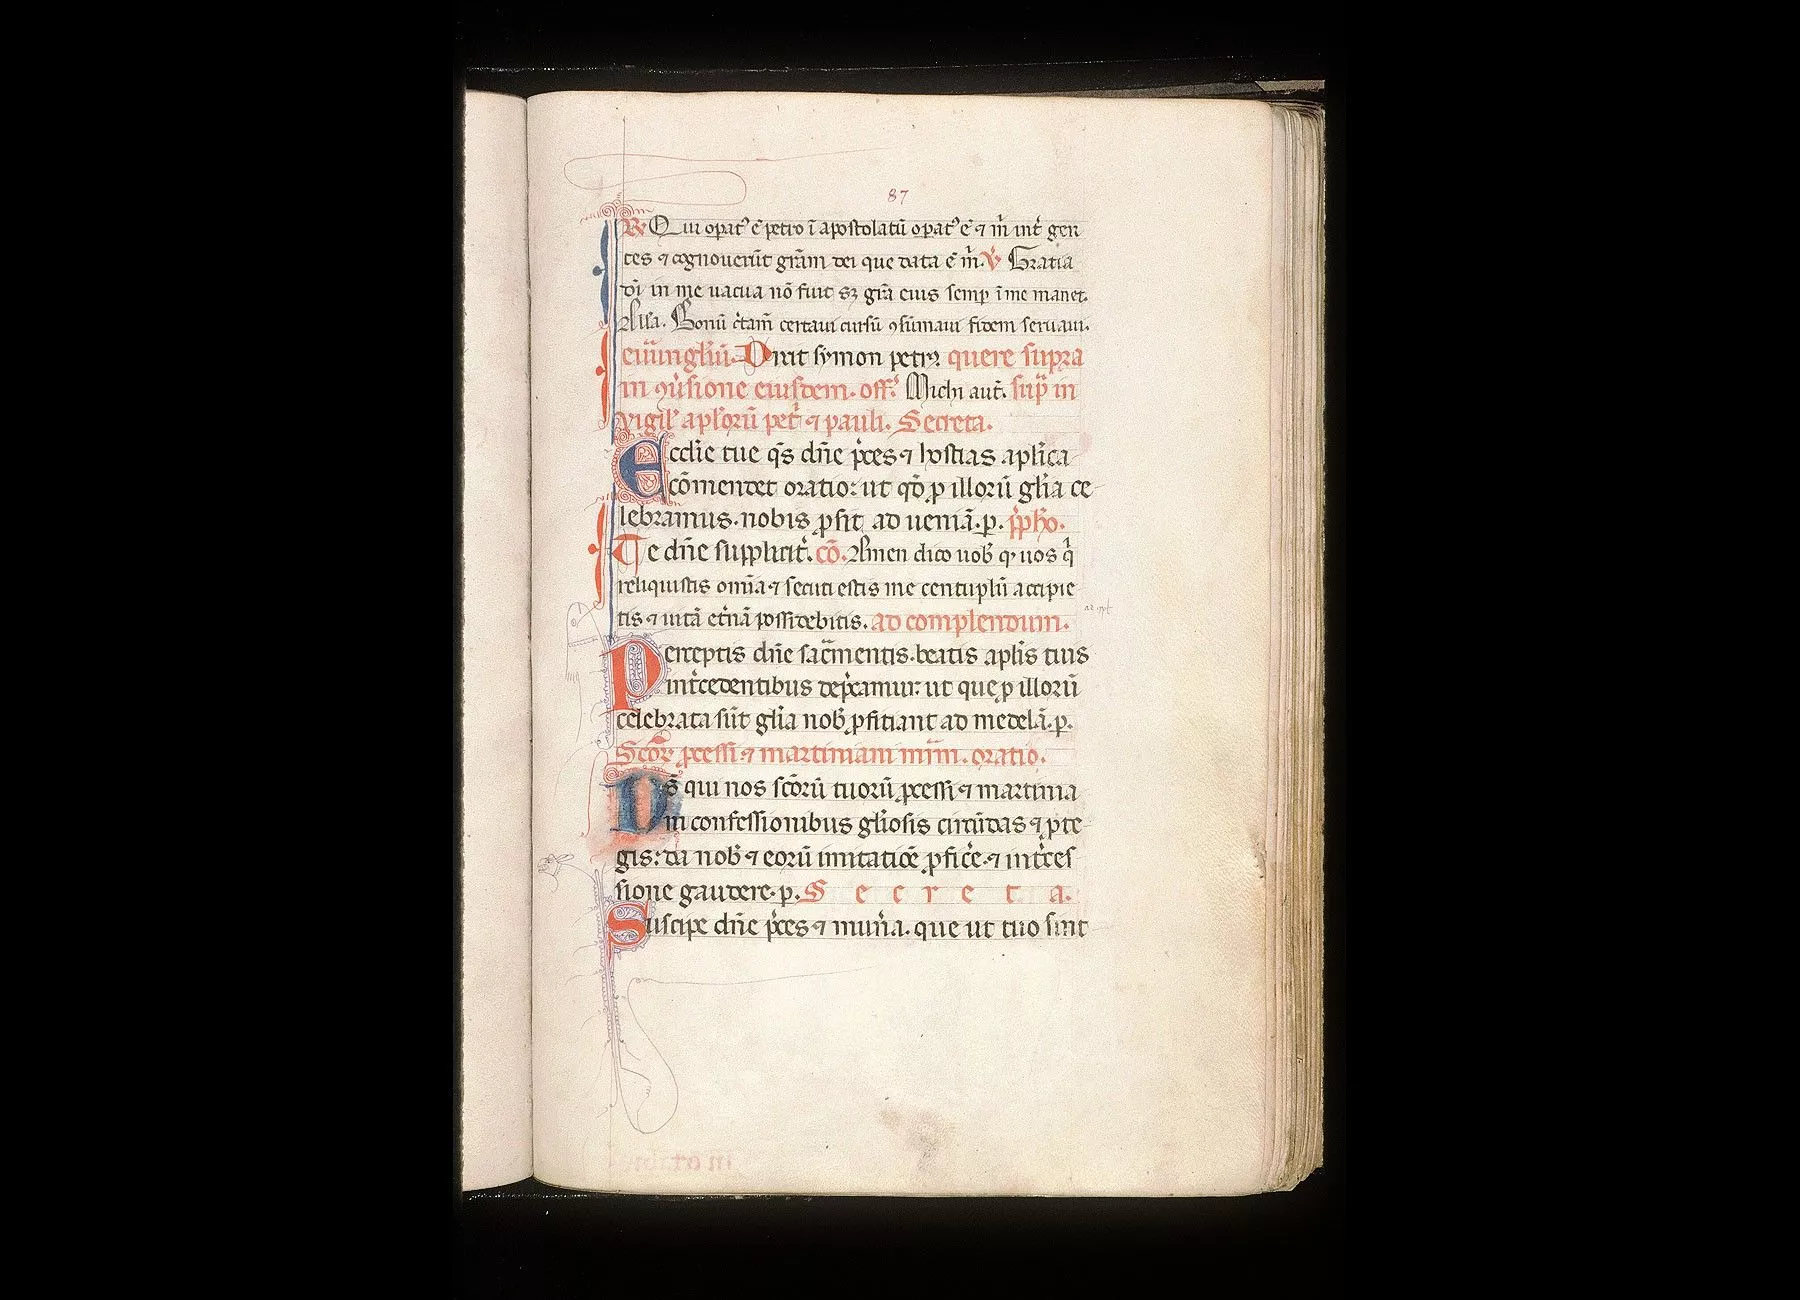 87
R Qui opat᾽ ē petro ī apostolatū opat᾽ ē ⁊ m̄ int̄ gen
tes ⁊ cognouerūt grām dei que data ē m̄. V̄ Gratia
dı̄ in me uacua nō fuit sꝫ grā eius semꝑ ī me manet.
All'a. Bonū c̄tam̄ certaui cursū ꝯsūmaui fidem seruaui.
euu̅ngl̄iū. Dixit symon petrꝰ quere supra
in ꝯu̅sione eiusdem. off. Michi aut̄. sup̄ in
vigil' apl'orū pet̄ ⁊ pauli. Secreta.
Eccl'ie tue q̄s dn̄e p̄ces ⁊ hostias apl'ica
cōmendet oratio: ut qd̄ ꝓ illorū gl'ia ce-
lebramus. nobis ꝓsit ad ueniā. p.
Te dn̄e supplicit̄. cō. Amen dico uob̄ ꝙ uos q̄
reliquistis omīa ⁊ secuti estis me centuplū accipie
tis ⁊ uitā et̄nā possidebitis. ad complendum.
Perceptis dn̄e sac̄mentis. beatis apl'is tuis
int̄cedentibus dep̄camur: ut que ꝓ illorū
celebrata sūt gl'ia nob̄ ꝓficiant ad medelā. p.
Scōꝝ ꝓcessi ⁊ martiniani mr̄m. oratio.
Ds̄ qui nos scōrū tuorū ꝓcessi ⁊ martinia
ni confessionibus gl'iosis circūdas ⁊ ꝓte-
gis: da nob̄ ⁊ eorū imitatiōe ꝓfic̄e. ⁊ int̄ces-
sione gaudere. p. Secreta.
Suscipe dn̄e p̄ces ⁊ mun̄a. que ut tuo sint